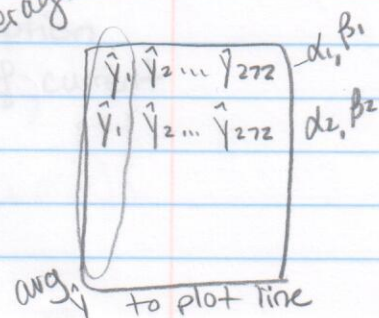 Ŷ₁ Ŷ₂ ... Ŷ₂₇₂ α₁, β₁
Ŷ₁ Ŷ₂ ... Ŷ₂₇₂ α₂, β₂
avg Ŷ to plot line